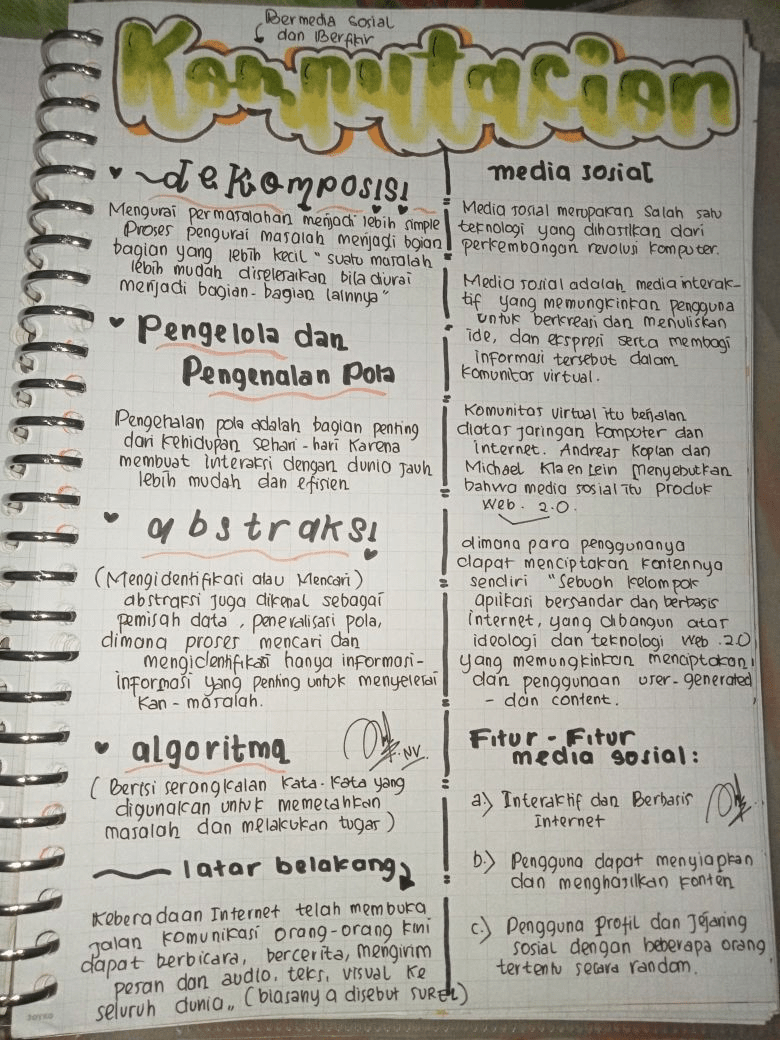 Bermedia sosial
dan Berfikir
Komputasion
dekomposisi
Mengurai permasalahan menjadi lebih simple
Proses pengurai masalah menjadi bgian
bagian yang lebih kecil "suatu masalah
lebih mudah diselesaikan bila diurai
menjadi bagian-bagian lainnya"
Pengelola dan
Pengenalan Pola
Pengenalan pola adalah bagian penting
dari kehidupan sehari-hari karena
membuat interaksi dengan dunia jauh
lebih mudah dan efisien
abstraksi
(Mengidentifikasi atau Mencari)
abstraksi juga dikenal sebagai
pemisah data, peneralisasi pola,
dimana proses mencari dan
mengidentifikasi hanya informasi-
informasi yang penting untuk menyelesai
kan-masalah.
NV.
algoritma
(Berisi serangkaian kata-kata yang
digunakan untuk memecahkan
masalah dan melakukan tugas)
latar belakang
Keberadaan Internet telah membuka
jalan komunikasi orang-orang kini
dapat berbicara, bercerita, mengirim
pesan dan audio, teks, visual ke
seluruh dunia,, (biasanya disebut SUREL)
media sosial
Media sosial merupakan salah satu
teknologi yang dihasilkan dari
perkembangan revolusi komputer.
Media sosial adalah media interak-
tif yang memungkinkan pengguna
untuk berkreasi dan menuliskan
ide, dan ekspresi serta membagi
informasi tersebut dalam
komunitas virtual.
Komunitas virtual itu berjalan
diatas jaringan komputer dan
internet. Andreas Koplan dan
Michael Klaen lein menyebutkan
bahwa media sosial itu produk
Web. 2.0.
dimana para penggunanya
dapat menciptakan kontennya
sendiri "Sebuah kelompok
aplikasi bersandar dan berbasis
internet, yang dibangun atas
ideologi dan teknologi web .2.0
yang memungkinkan menciptakan
dan penggunaan user-generated
- dan content.
Fitur-Fitur
media sosial:
a.) Interaktif dan Berbasis
Internet
b.) Pengguna dapat menyiapkan
dan menghasilkan konten
c.) Pengguna profil dan Jejaring
sosial dengan beberapa orang
tertentu secara randam.
JOYKO